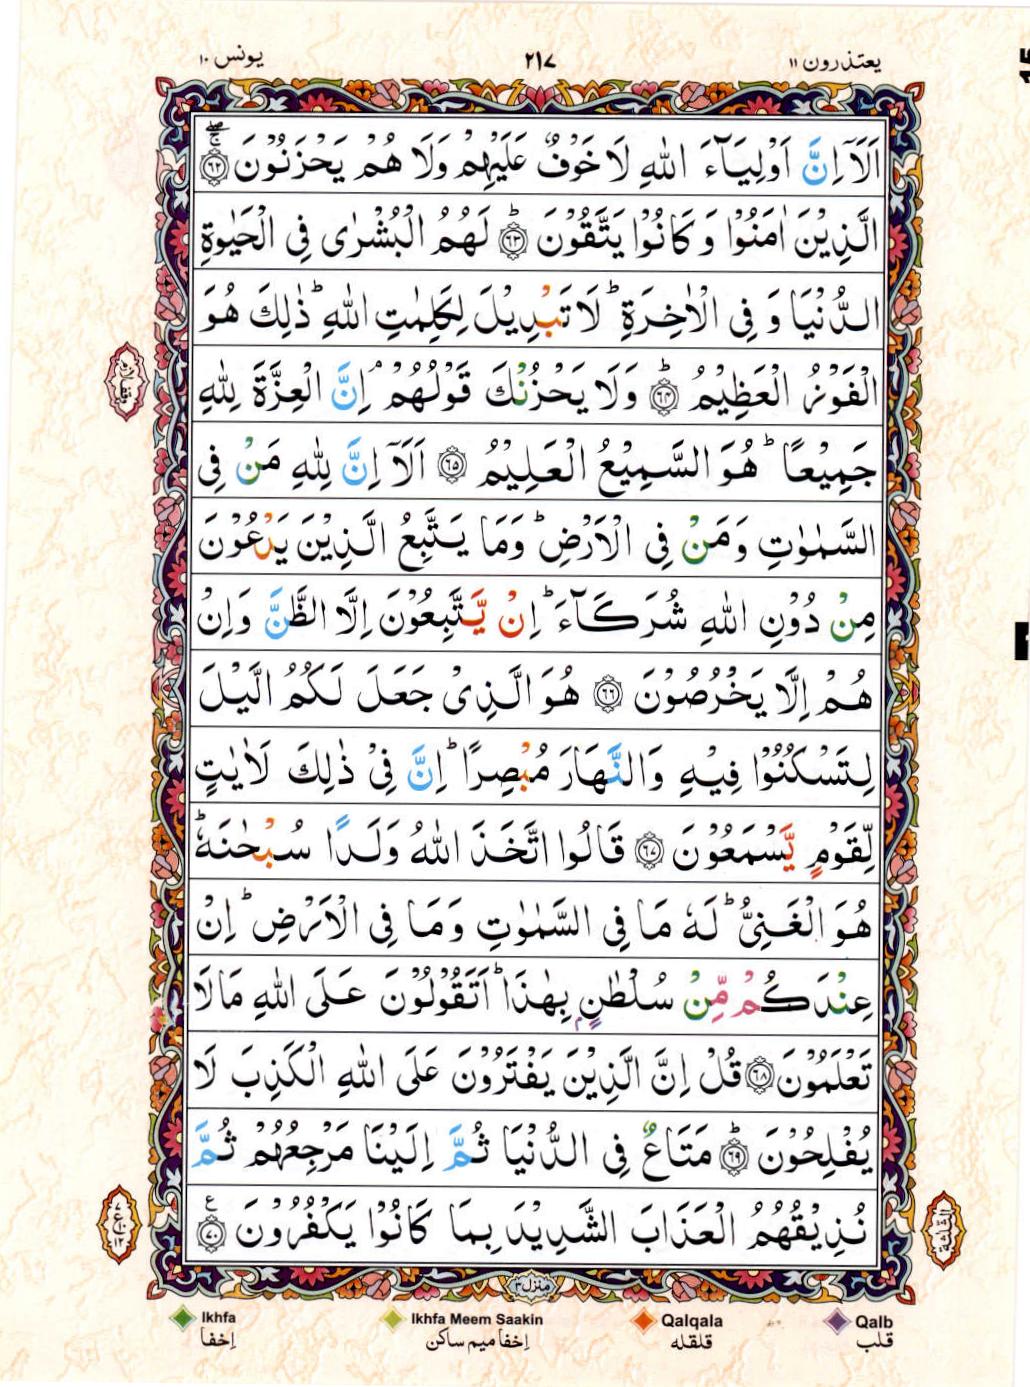 یعتذرون ۱۱
۲۱۷
یونس ۱۰
اَلَاۤ اِنَّ اَوْلِیَآءَ اللّٰهِ لَا خَوْفٌ عَلَیْهِمْ وَلَا هُمْ یَحْزَنُوْنَ ۶۲
الَّذِیْنَ اٰمَنُوْا وَ كَانُوْا یَتَّقُوْنَ ۶۳ؕ لَهُمُ الْبُشْرٰى فِی الْحَیٰوةِ
الدُّنْیَا وَ فِی الْاٰخِرَةِ ؕ لَا تَبْدِیْلَ لِكَلِمٰتِ اللّٰهِ ؕ ذٰلِكَ هُوَ
الْفَوْزُ الْعَظِیْمُ ۶۴ؕ وَلَا یَحْزُنْكَ قَوْلُهُمْ ۘ اِنَّ الْعِزَّةَ لِلّٰهِ
جَمِیْعًا ؕ هُوَ السَّمِیْعُ الْعَلِیْمُ ۶۵ اَلَاۤ اِنَّ لِلّٰهِ مَنْ فِی
السَّمٰوٰتِ وَمَنْ فِی الْاَرْضِ ؕ وَمَا یَتَّبِعُ الَّذِیْنَ یَدْعُوْنَ
مِنْ دُوْنِ اللّٰهِ شُرَكَآءَ ؕ اِنْ یَّتَّبِعُوْنَ اِلَّا الظَّنَّ وَاِنْ
هُمْ اِلَّا یَخْرُصُوْنَ ۶۶ هُوَ الَّذِیْ جَعَلَ لَكُمُ الَّیْلَ
لِتَسْكُنُوْا فِیْهِ وَالنَّهَارَ مُبْصِرًا ؕ اِنَّ فِیْ ذٰلِكَ لَاٰیٰتٍ
لِّقَوْمٍ یَّسْمَعُوْنَ ۶۷ قَالُوا اتَّخَذَ اللّٰهُ وَلَدًا سُبْحٰنَهٗ ؕ
هُوَ الْغَنِیُّ ؕ لَهٗ مَا فِی السَّمٰوٰتِ وَمَا فِی الْاَرْضِ ؕ اِنْ
عِنْدَكُمْ مِّنْ سُلْطٰنٍۭ بِهٰذَا ؕ اَتَقُوْلُوْنَ عَلَى اللّٰهِ مَا لَا
تَعْلَمُوْنَ ۶۸ قُلْ اِنَّ الَّذِیْنَ یَفْتَرُوْنَ عَلَى اللّٰهِ الْكَذِبَ لَا
یُفْلِحُوْنَ ۶۹ؕ مَتَاعٌ فِی الدُّنْیَا ثُمَّ اِلَیْنَا مَرْجِعُهُمْ ثُمَّ
نُذِیْقُهُمُ الْعَذَابَ الشَّدِیْدَ بِمَا كَانُوْا یَكْفُرُوْنَ ۷۰ ع
الثلٰثة
منزل ۳
Ikhfa
Ikhfa Meem Saakin
Qalqala
Qalb
إخفا
إخفا میم ساکن
قلقله
قلب